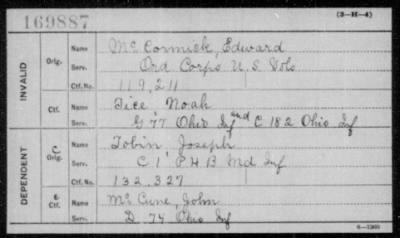 169887
(3-H-4)
INVALID
Orig.
Name
Mc Cormick, Edward
Serv.
Ord Corps U.S Vols
Ctf. No.
119,211
Ctf.
Name
Tice Noah
Serv.
G 77 Ohio Inf and C 182 Ohio Inf
DEPENDENT
C
Orig.
Name
Tobin, Joseph
Serv.
C 1' P H B Md Inf
Ctf. No.
132.327
Ctf.
Name
Mc Cune, John
Serv.
D 74 Ohio Inf